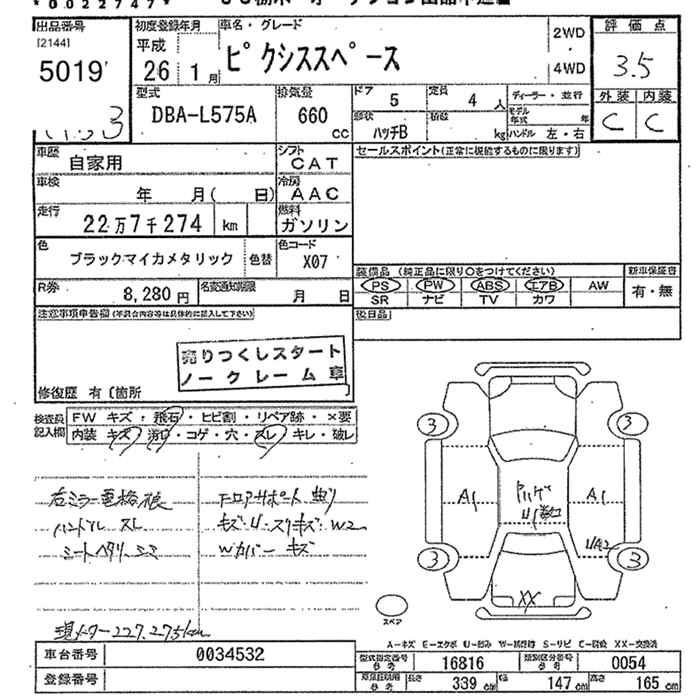 *0022747*
出品番号
[2144]
5019
初度登録年月
平成
26 1月
車名・グレード
ピクシススペース
2WD
4WD
評価点
3.5
外装 内装
C C
型式
DBA-L575A
排気量
660
cc
ドア
5
定員
4人
ディーラー・並行
形状
ハッチB
積載
kg
モデル年式 年
ハンドル 左・右
車歴
自家用
シフト
CAT
セールスポイント(正常に機能するものに限ります)
車検
年 月( 日)
冷房
AAC
走行
22万7千274 km
燃料
ガソリン
色
ブラックマイカメタリック
色替
色コード
X07
装備品 (純正品に限り○をつけてください)
新車保証書
PS PW ABS エアB AW
有・無
SR ナビ TV カワ
R券
8,280円
名変通知期限
月 日
後日品
注意事項申告欄(不具合内容等は具体的に記入して下さい)
売りつくしスタート
ノークレーム車
修復歴 有〔箇所 〕
検査員記入欄
FW キズ・飛石・ヒビ割・リペア跡・×要
内装 キズ・汚れ・コゲ・穴・スレ・キレ・破レ
ハンドル スレ
シートヘタリ
キズ
Wカバー キズ
現メーター227,275km
3 3
A1 A1
3 3
XX
スペア
A-キズ E-エクボ U-凹み W-補修跡 S-サビ C-腐食 XX-交換済
車台番号
0034532
型式指定番号
参考
16816
類別区分番号
参考
0054
登録番号
参考
長さ
339 cm
幅
147 cm
高さ
165 cm